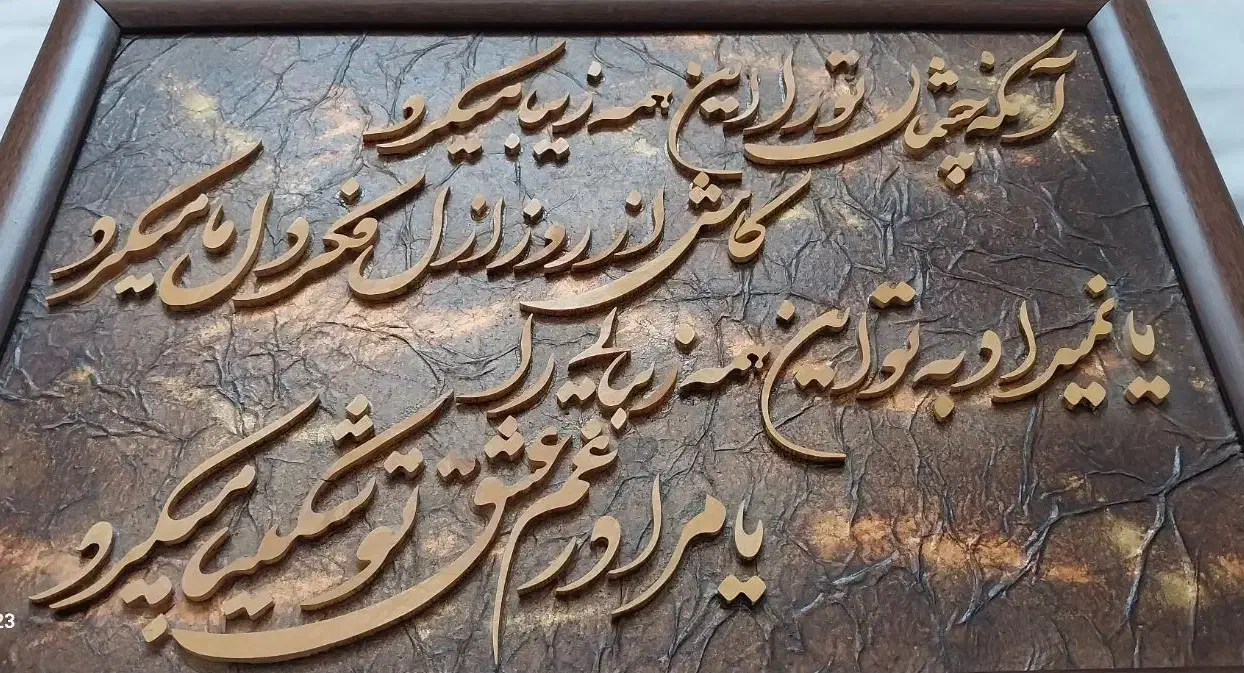 آنکه چشمان تو را این همه زیبا میکرد
کاش از روز ازل فکر دل ما میکرد
یا نمیداد به تو این همه زیبایی را
یا مرا در غم عشق تو شکیبا میکرد
23